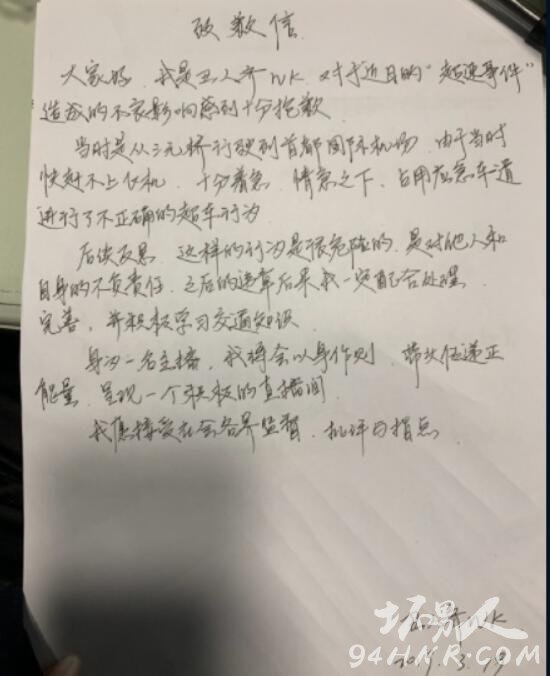 致歉信
大家好，我是主人齐NK，对于近日的“超速事件”
造成的不良影响感到十分抱歉
当时是从三元桥行驶到首都国际机场，由于当时
快赶不上飞机，十分着急，情急之下，占用应急车道
进行了不正确的超车行为
后续反思，这样的行为是很危险的，是对他人和
自身的不负责任，之后的违章后果我一定配合处理
完善，并积极学习交通知识
身为一名主播，我将会以身作则，带头传递正
能量，呈现一个积极的直播间
我愿接受社会各界监督，批评与指点
NK
坏男人
94HNR.COM